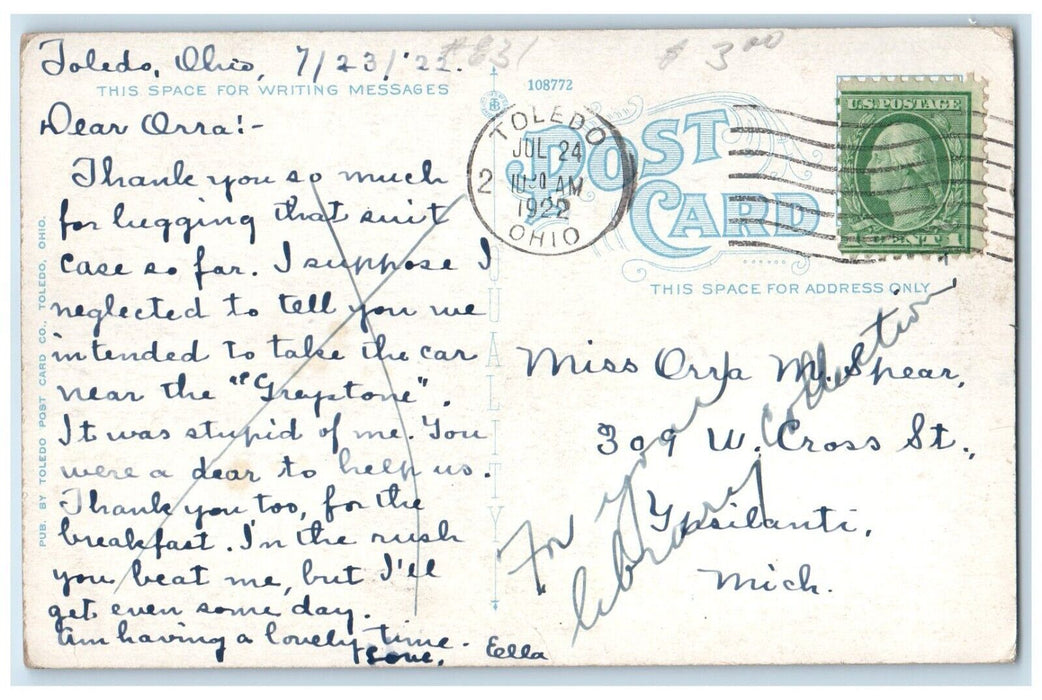 Toledo, Ohio, 7/23/'22.
#831
$ 3.00
THIS SPACE FOR WRITING MESSAGES
108772
Dear Orra!-
Thank you so much
for lugging that suit
case so far. I suppose I
neglected to tell you we
intended to take the car
near the "Greystone".
It was stupid of me. You
were a dear to help us.
Thank you too, for the
breakfast. In the rush
you beat me, but I'll
get even some day.
Am having a lovely time.
Love, Ella
PUB. BY TOLEDO POST CARD CO., TOLEDO, OHIO.
QUALITY
TOLEDO
JUL 24
2
10 30 AM
1922
OHIO
POST
CARD
U.S. POSTAGE
1 CENT 1
THIS SPACE FOR ADDRESS ONLY
Miss Orra M. Spear,
309 W. Cross St.,
Ypsilanti,
Mich.
For your collection
library